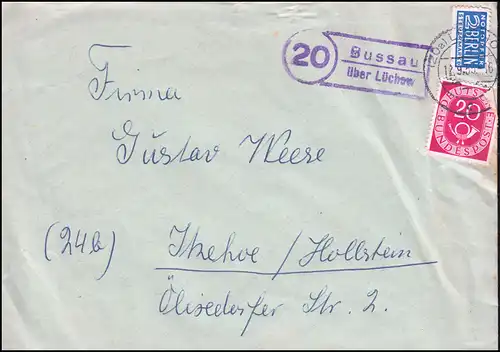 20
Bussau
über Lüchow
NOTOPFER
2 BERLIN
STEUERMARKE
20
DEUTSCHE
BUNDESPOST
Firma
Gustav Weese
(24b) Itzehoe / Hollstein
Ölixdorfer Str. 2.